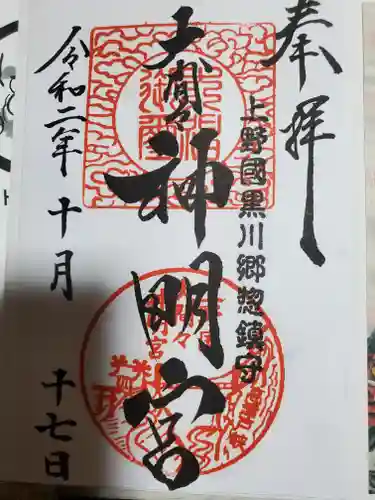 奉拝
上野國黒川郷惣鎮守
大間々
神明宮
令和二年十月十七日